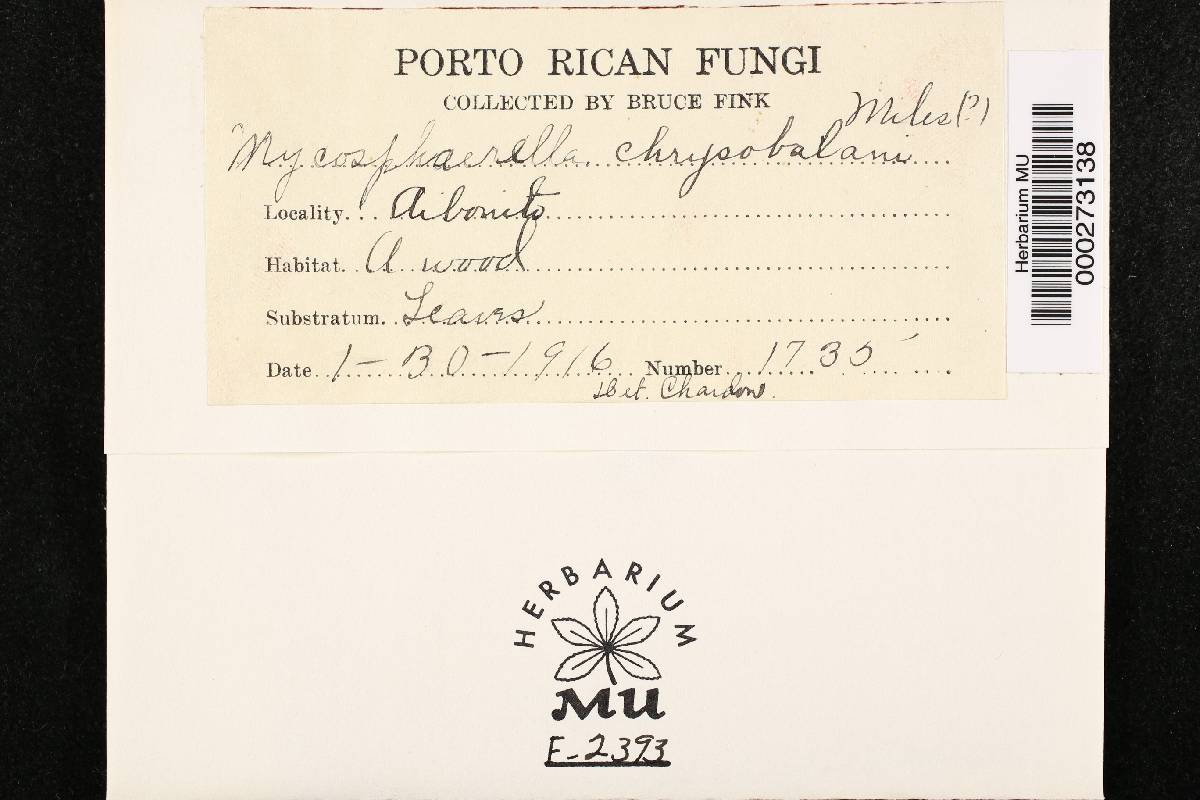 PORTO RICAN FUNGI
COLLECTED BY BRUCE FINK
Miles (?)
Mycosphaerella chrysobalani
Locality... Aibonito
Habitat. A wood
Substratum. Leaves
Date. 1-30-1916 Number 1735
Det. Chardon.
Herbarium MU
000273138
HERBARIUM
MU
F-2393